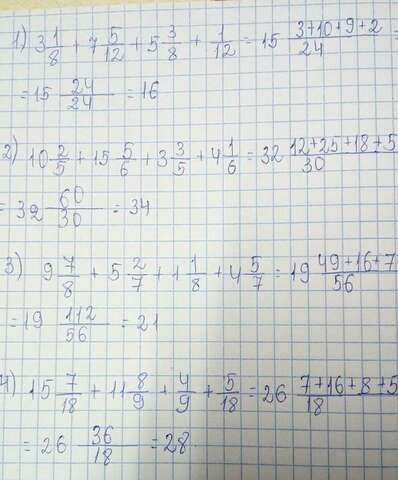 1) 3 1/8 + 7 5/12 + 5 3/8 + 1/12 = 15 (3+10+9+2)/24 =
= 15 24/24 = 16
2) 10 2/5 + 15 5/6 + 3 3/5 + 4 1/6 = 32 (12+25+18+5)/30
= 32 60/30 = 34
3) 9 7/8 + 5 2/7 + 1 1/8 + 4 5/7 = 19 (49+16+7)/56
= 19 112/56 = 21
4) 15 7/18 + 11 8/9 + 4/9 + 5/18 = 26 (7+16+8+5)/18
= 26 36/18 = 28.